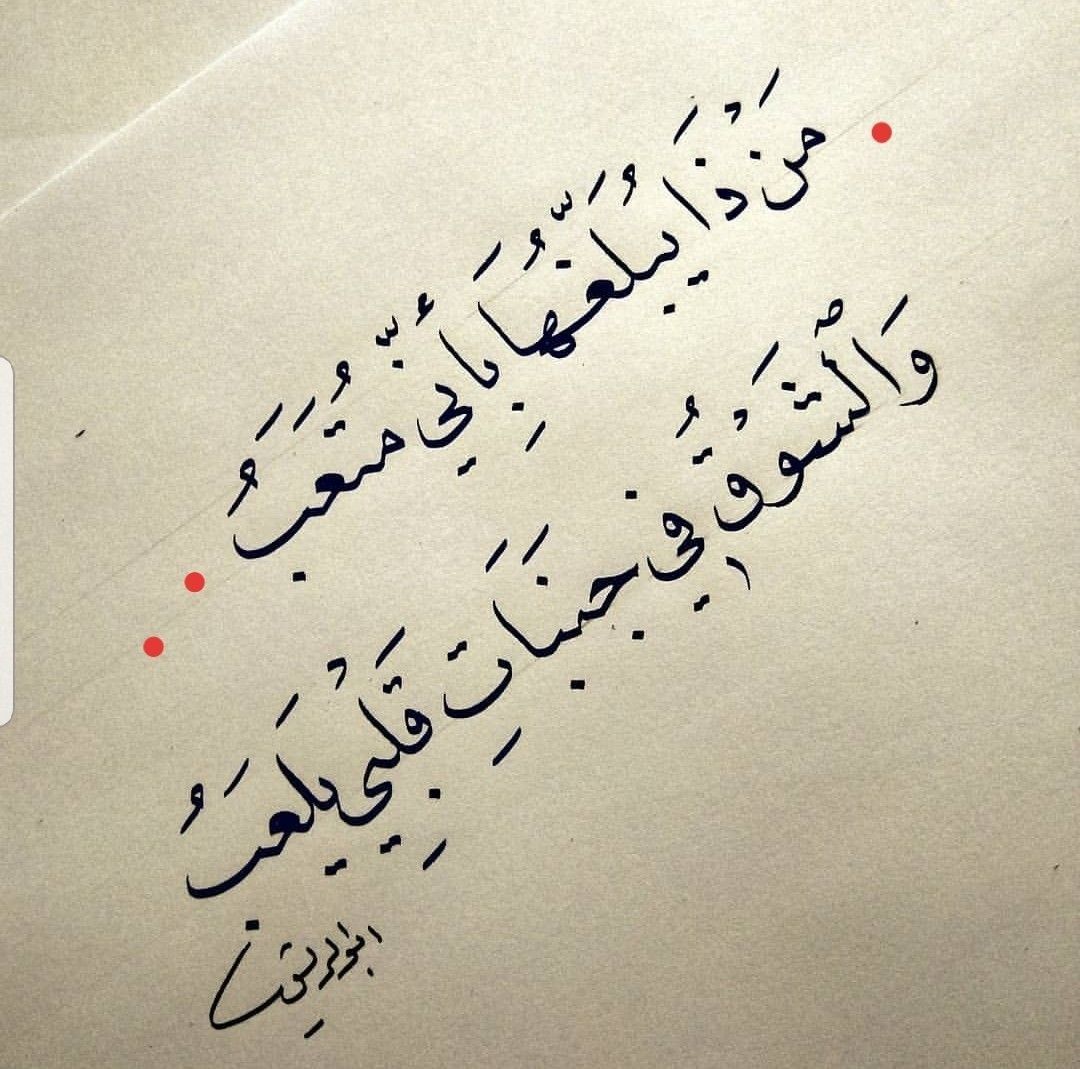 مَنْ ذَا يُبَلِّغُهَا بِأَنّي مُتَعَبُ
وَٱلشَوْقُ في جَنَبَاتِ قَلْبِي يَلْعَبُ